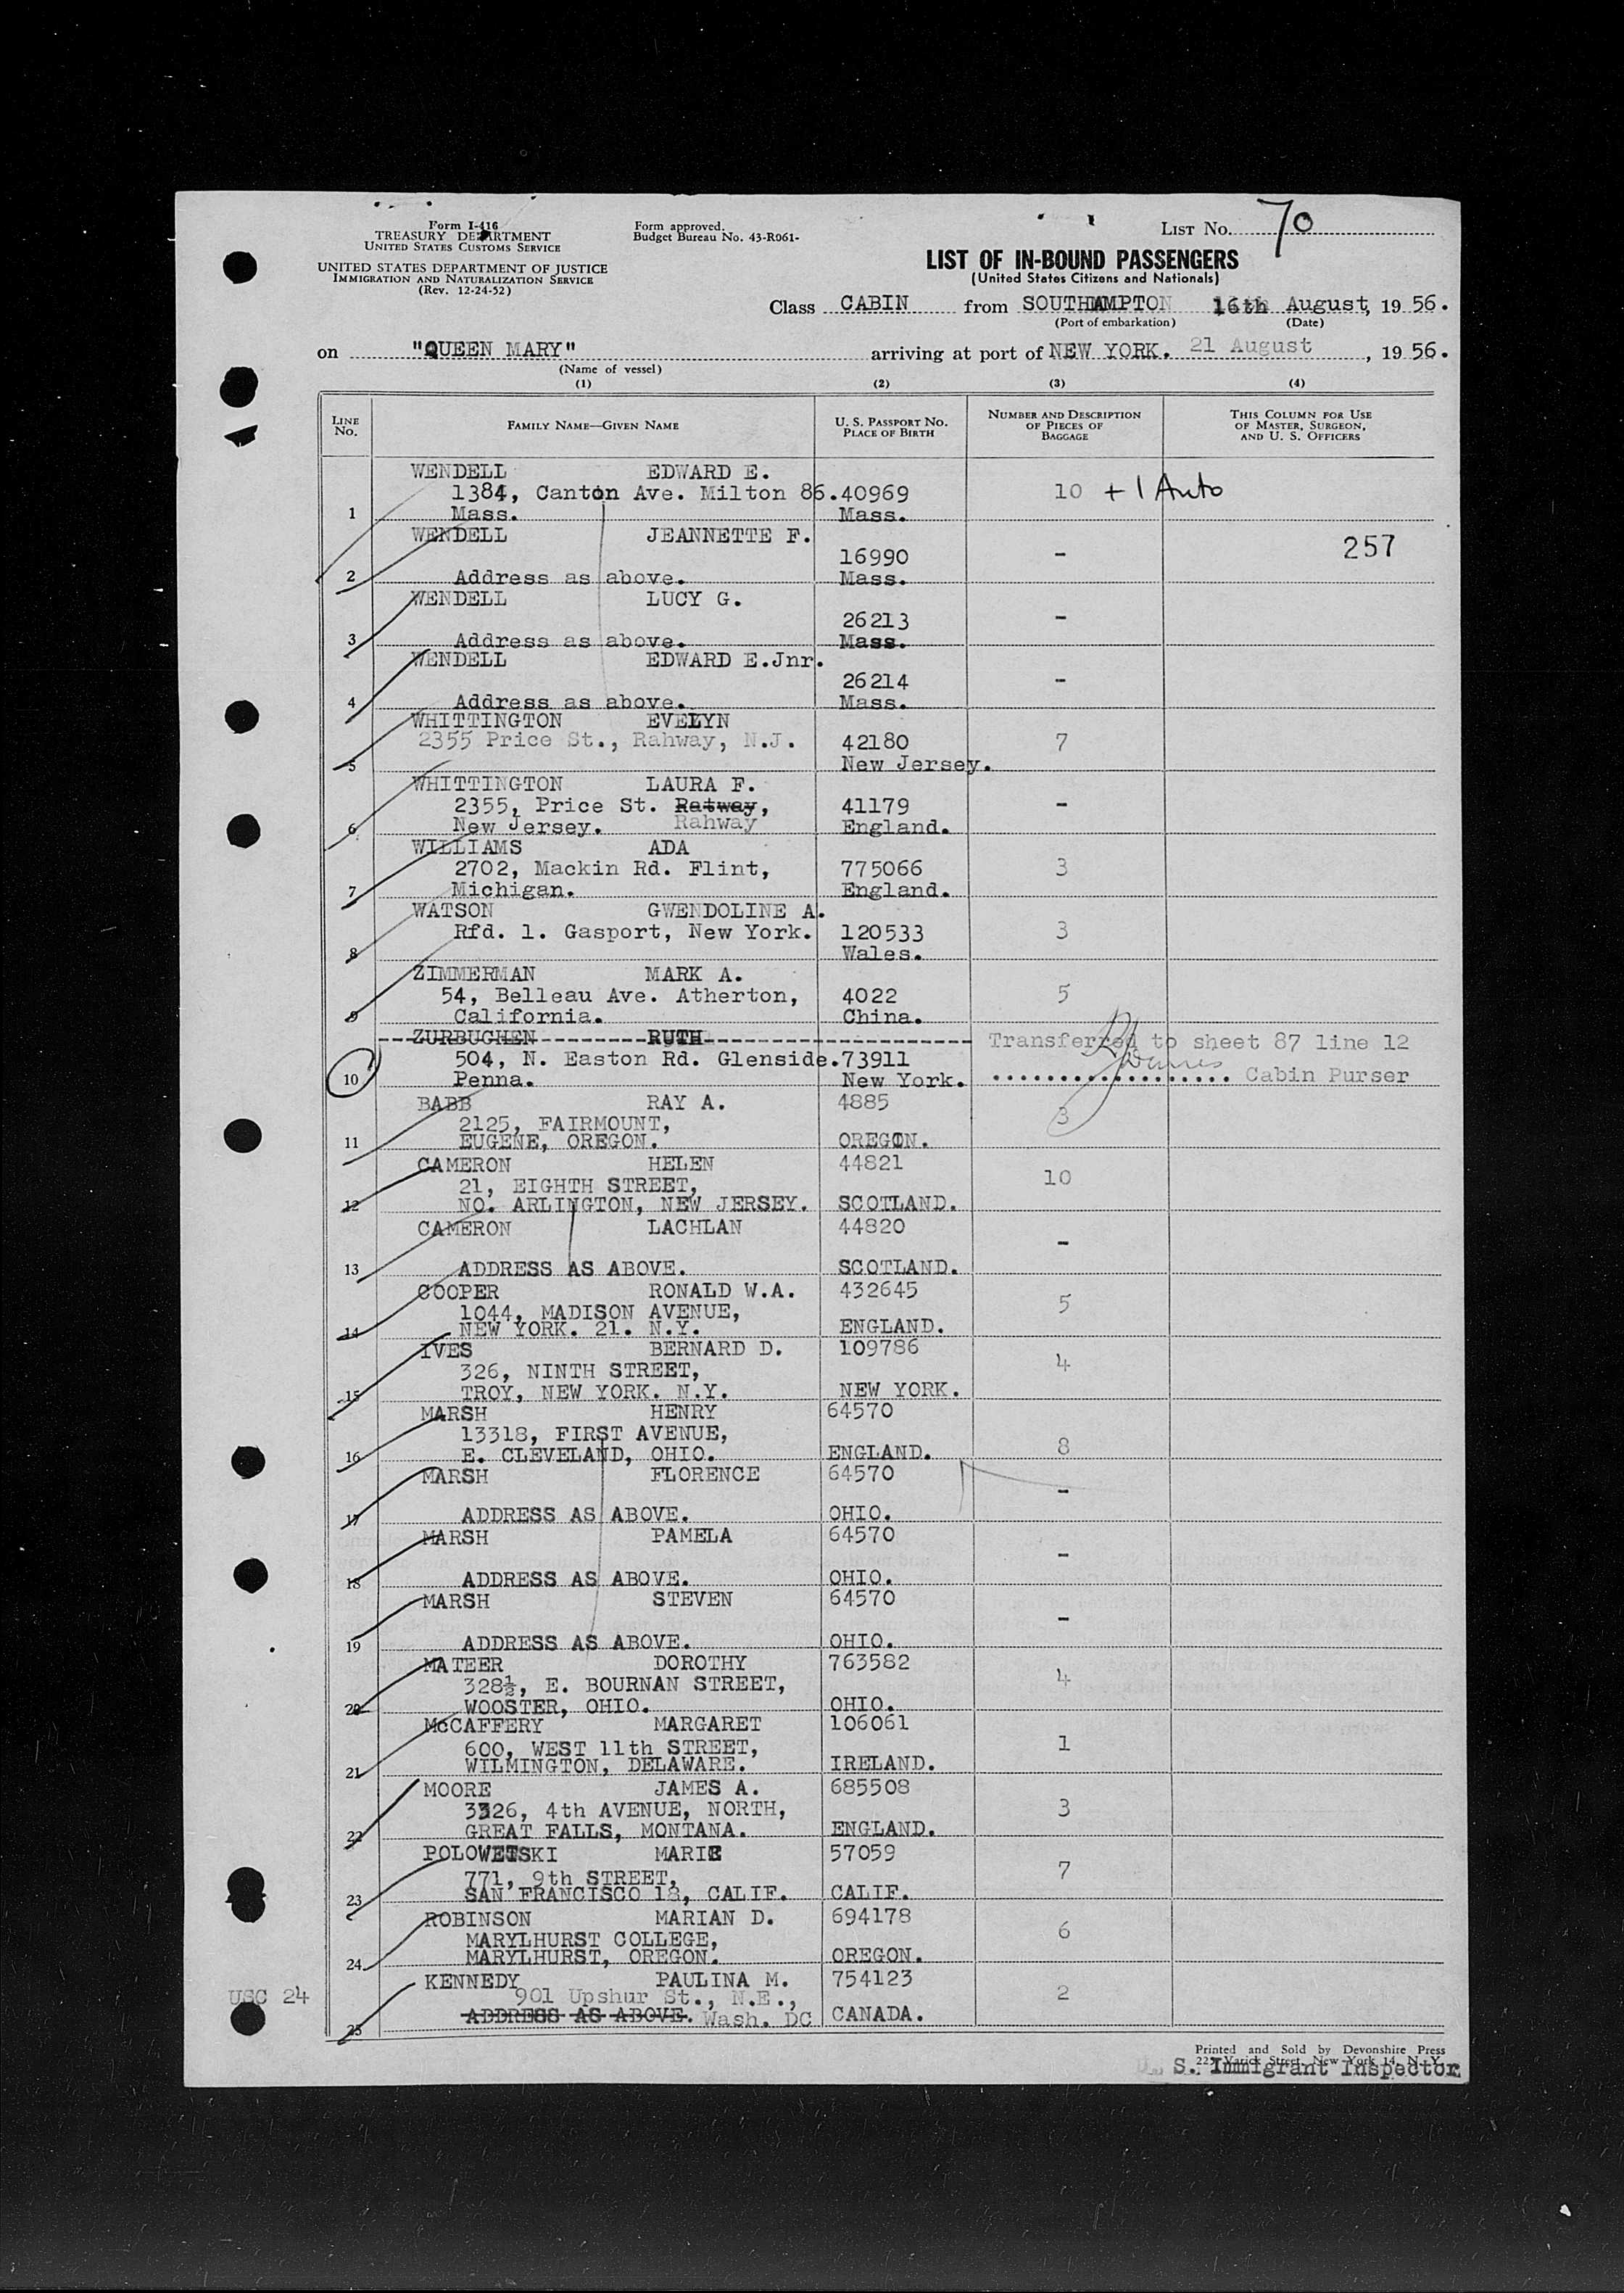 Form I-416
TREASURY DEPARTMENT
UNITED STATES CUSTOMS SERVICE
UNITED STATES DEPARTMENT OF JUSTICE
IMMIGRATION AND NATURALIZATION SERVICE
(Rev. 12-24-52)
Form approved.
Budget Bureau No. 43-R061-
LIST No. 70
LIST OF IN-BOUND PASSENGERS
(United States Citizens and Nationals)
Class CABIN from SOUTHAMPTON 16th August, 1956.
(Port of embarkation) (Date)
on "QUEEN MARY" arriving at port of NEW YORK. 21 August, 1956.
(Name of vessel)
(1) (2) (3) (4)
LINE No. FAMILY NAME—GIVEN NAME U. S. PASSPORT No. PLACE OF BIRTH NUMBER AND DESCRIPTION OF PIECES OF BAGGAGE THIS COLUMN FOR USE OF MASTER, SURGEON, AND U. S. OFFICERS
WENDELL EDWARD E.
1384, Canton Ave. Milton 86. 40969 10 + 1 Auto
1 Mass. Mass.
WENDELL JEANNETTE F.
16990 - 257
2 Address as above. Mass.
WENDELL LUCY G.
26213 -
3 Address as above. Mass.
WENDELL EDWARD E.Jnr.
26214 -
4 Address as above. Mass.
WHITTINGTON EVELYN
2355 Price St., Rahway, N.J. 42180 7
5 New Jersey.
WHITTINGTON LAURA F.
2355, Price St. Ratway, 41179 -
6 New Jersey. Rahway England.
WILLIAMS ADA
2702, Mackin Rd. Flint, 775066 3
7 Michigan. England.
WATSON GWENDOLINE A.
Rfd. 1. Gasport, New York. 120533 3
8 Wales.
ZIMMERMAN MARK A.
54, Belleau Ave. Atherton, 4022 5
9 California. China.
ZURBUCHEN RUTH Transferred to sheet 87 line 12
504, N. Easton Rd. Glenside. 73911
10 Penna. New York. .................. Cabin Purser
BABB RAY A. 4885
2125, FAIRMOUNT, 3
11 EUGENE, OREGON. OREGON.
CAMERON HELEN 44821
21, EIGHTH STREET, 10
12 NO. ARLINGTON, NEW JERSEY. SCOTLAND.
CAMERON LACHLAN 44820
-
13 ADDRESS AS ABOVE. SCOTLAND.
COOPER RONALD W.A. 432645
1044, MADISON AVENUE, 5
14 NEW YORK. 21. N.Y. ENGLAND.
IVES BERNARD D. 109786
326, NINTH STREET, 4
15 TROY, NEW YORK. N.Y. NEW YORK.
MARSH HENRY 64570
13318, FIRST AVENUE,
16 E. CLEVELAND, OHIO. ENGLAND. 8
MARSH FLORENCE 64570
-
17 ADDRESS AS ABOVE. OHIO.
MARSH PAMELA 64570
-
18 ADDRESS AS ABOVE. OHIO.
MARSH STEVEN 64570
-
19 ADDRESS AS ABOVE. OHIO.
MATEER DOROTHY 763582
328½, E. BOURNAN STREET, 4
20 WOOSTER, OHIO. OHIO.
McCAFFERY MARGARET 106061
600, WEST 11th STREET, 1
21 WILMINGTON, DELAWARE. IRELAND.
MOORE JAMES A. 685508
3326, 4th AVENUE, NORTH, 3
22 GREAT FALLS, MONTANA. ENGLAND.
POLOWETSKI MARIE 57059
771, 9th STREET, 7
23 SAN FRANCISCO 18, CALIF. CALIF.
ROBINSON MARIAN D. 694178
MARYLHURST COLLEGE, 6
24 MARYLHURST, OREGON. OREGON.
KENNEDY PAULINA M. 754123
USC 24 901 Upshur St., N.E., 2
25 ADDRESS AS ABOVE. Wash. DC CANADA.
Printed and Sold by Devonshire Press
225 Varick Street, New York 14, N. Y.
U. S. Immigrant Inspector